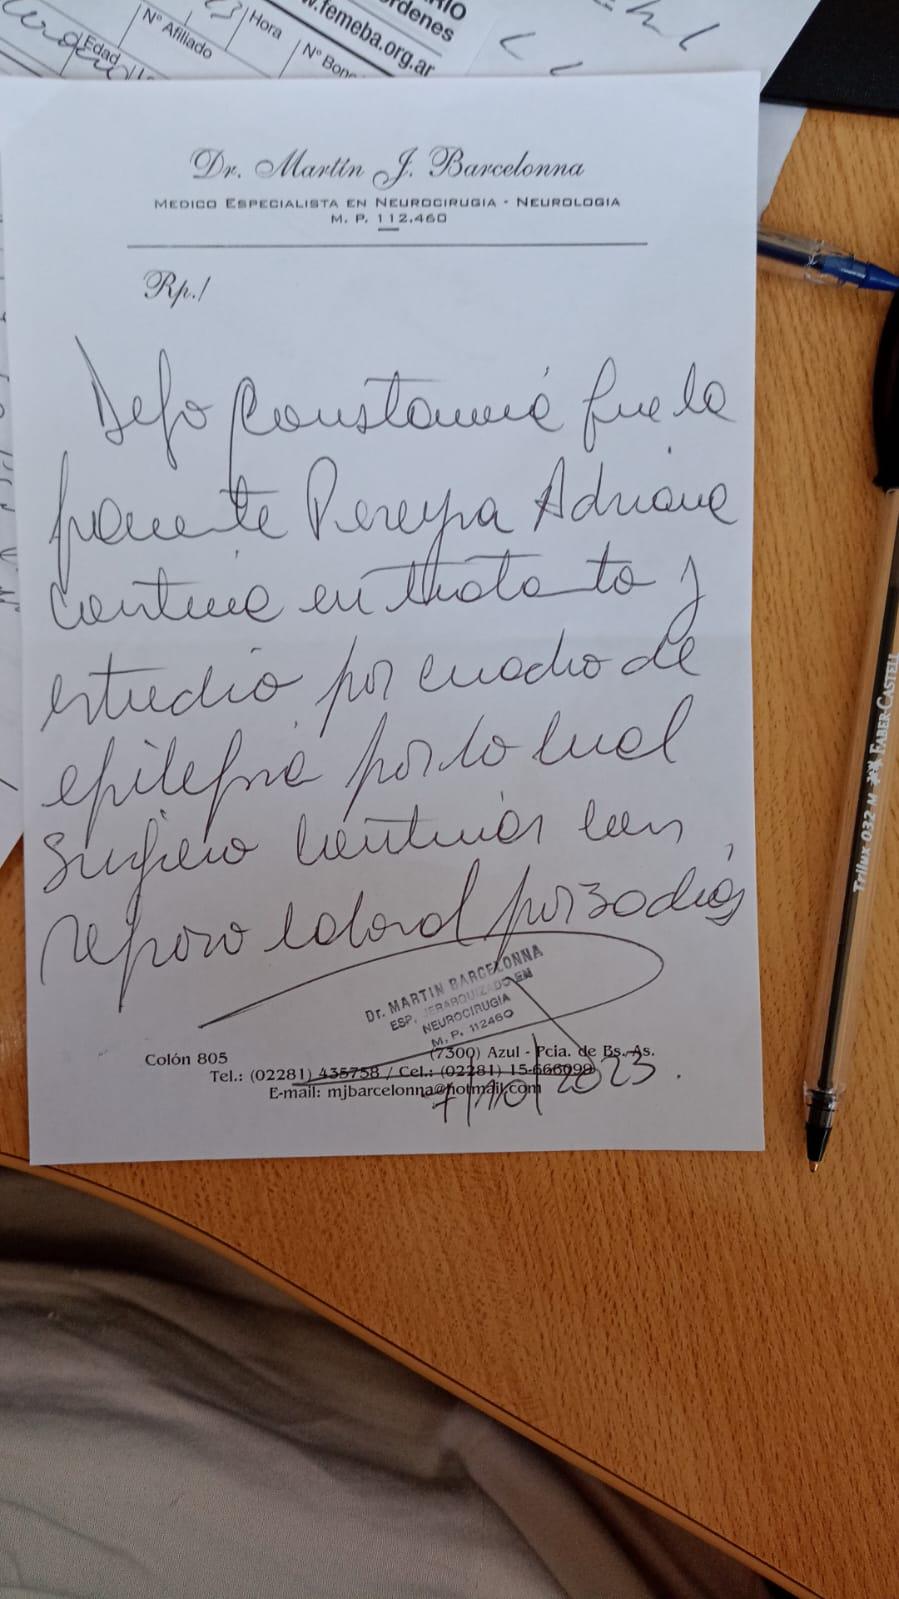 Nº Afiliado
Hora
Edad
www.femeba.org.ar
Dr. Martín J. Barcelonna
MEDICO ESPECIALISTA EN NEUROCIRUGIA - NEUROLOGIA
M. P. 112.460
Rp./
Dejo Constancia que la
paciente Pereyra Adriana
continua en tratato y
estudio por cuadro de
epilepsia por lo cual
sugiero continuar con
reposo laboral por 30 dias
Dr. MARTIN BARCELONNA
ESP. JERARQUIZADO EN
NEUROCIRUGIA
M. P. 112460
Colón 805
(7300) Azul - Pcia. de Bs. As.
Tel.: (02281) 435758 / Cel.: (02281) 15-666099
E-mail: mjbarcelonna@hotmail.com
/10/2023.
Trilux 032 M FABER-CASTELL